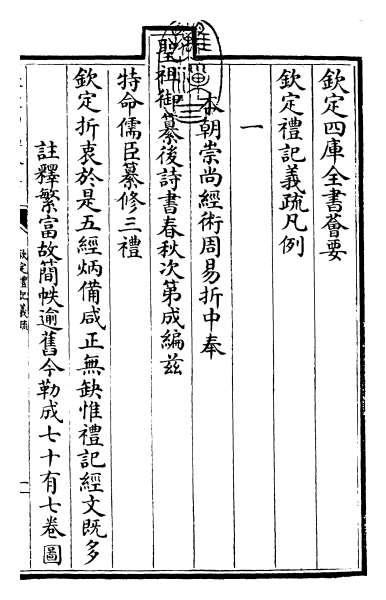 欽定四庫全書薈要
欽定禮記義疏凡例
一
本朝崇尚經術周易折中奉
聖祖御纂後詩書春秋次第成編茲
特命儒臣纂修三禮
欽定折衷於是五經炳備咸正無缺惟禮記經文既多
註釋繁富故簡帙逾舊今勒成七十有七卷圖
欽定禮記義疏